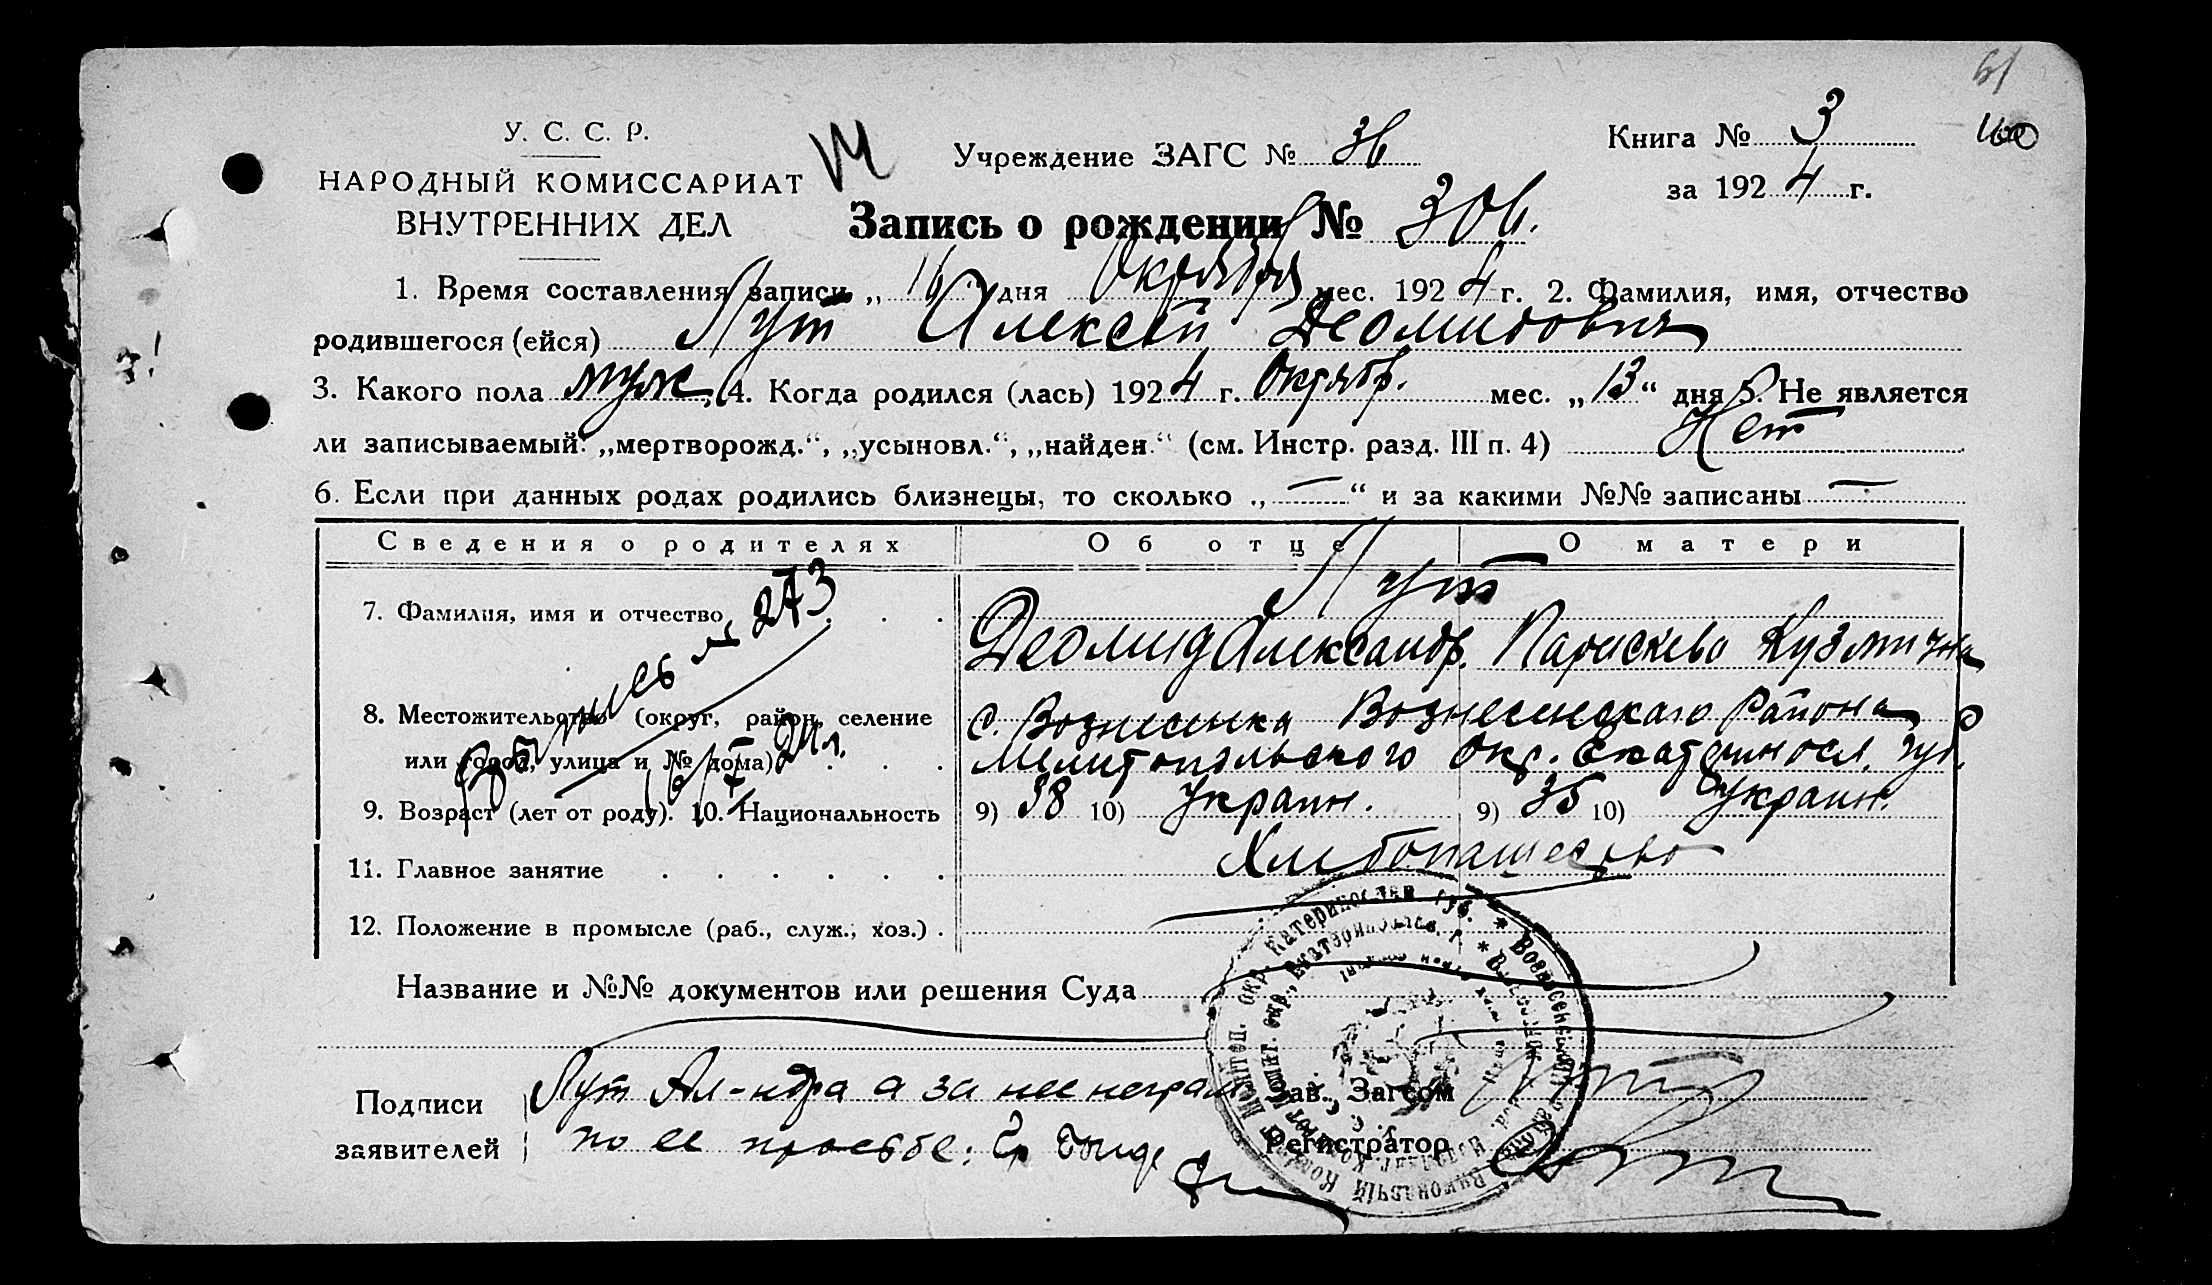 61
У. С. С. Р.
НАРОДНЫЙ КОМИССАРИАТ
ВНУТРЕННИХ ДЕЛ
Учреждение ЗАГС № 36
Книга № 3
160
за 1924 г.
Запись о рождении № 306.
1. Время составления записи „16" дня Октября мес. 1924 г. 2. Фамилия, имя, отчество
родившегося (ейся) Лут Алексей Деомидович
3. Какого пола муж, 4. Когда родился (лась) 1924 г. Октябр. мес. „13" дня 5. Не является
ли записываемый: „мертворожд.", „усыновл.", „найден." (см. Инстр. разд. III п. 4) Нет
6. Если при данных родах родились близнецы, то сколько „—" и за какими №№ записаны —
Сведения о родителях Об отце О матери
7. Фамилия, имя и отчество Лут
Деомид Александр. Параскева Кузмична
№ 273
8. Местожительство (округ, район, селение с. Вознесенка Вознесенскаго Района
или город, улица и № дома) Мелитопольского Окр. Екатериносл. губ.
16/X 24 г.
9. Возраст (лет от роду). 10. Национальность 9) 38 10) Украин. 9) 35 10) Украин.
11. Главное занятие Хлебопашество
12. Положение в промысле (раб., служ., хоз.)
Название и №№ документов или решения Суда
Подписи заявителей
Лут Ал-ндра а за нее неграм
по ее просьбе:
Зав. Загсом
Регистратор